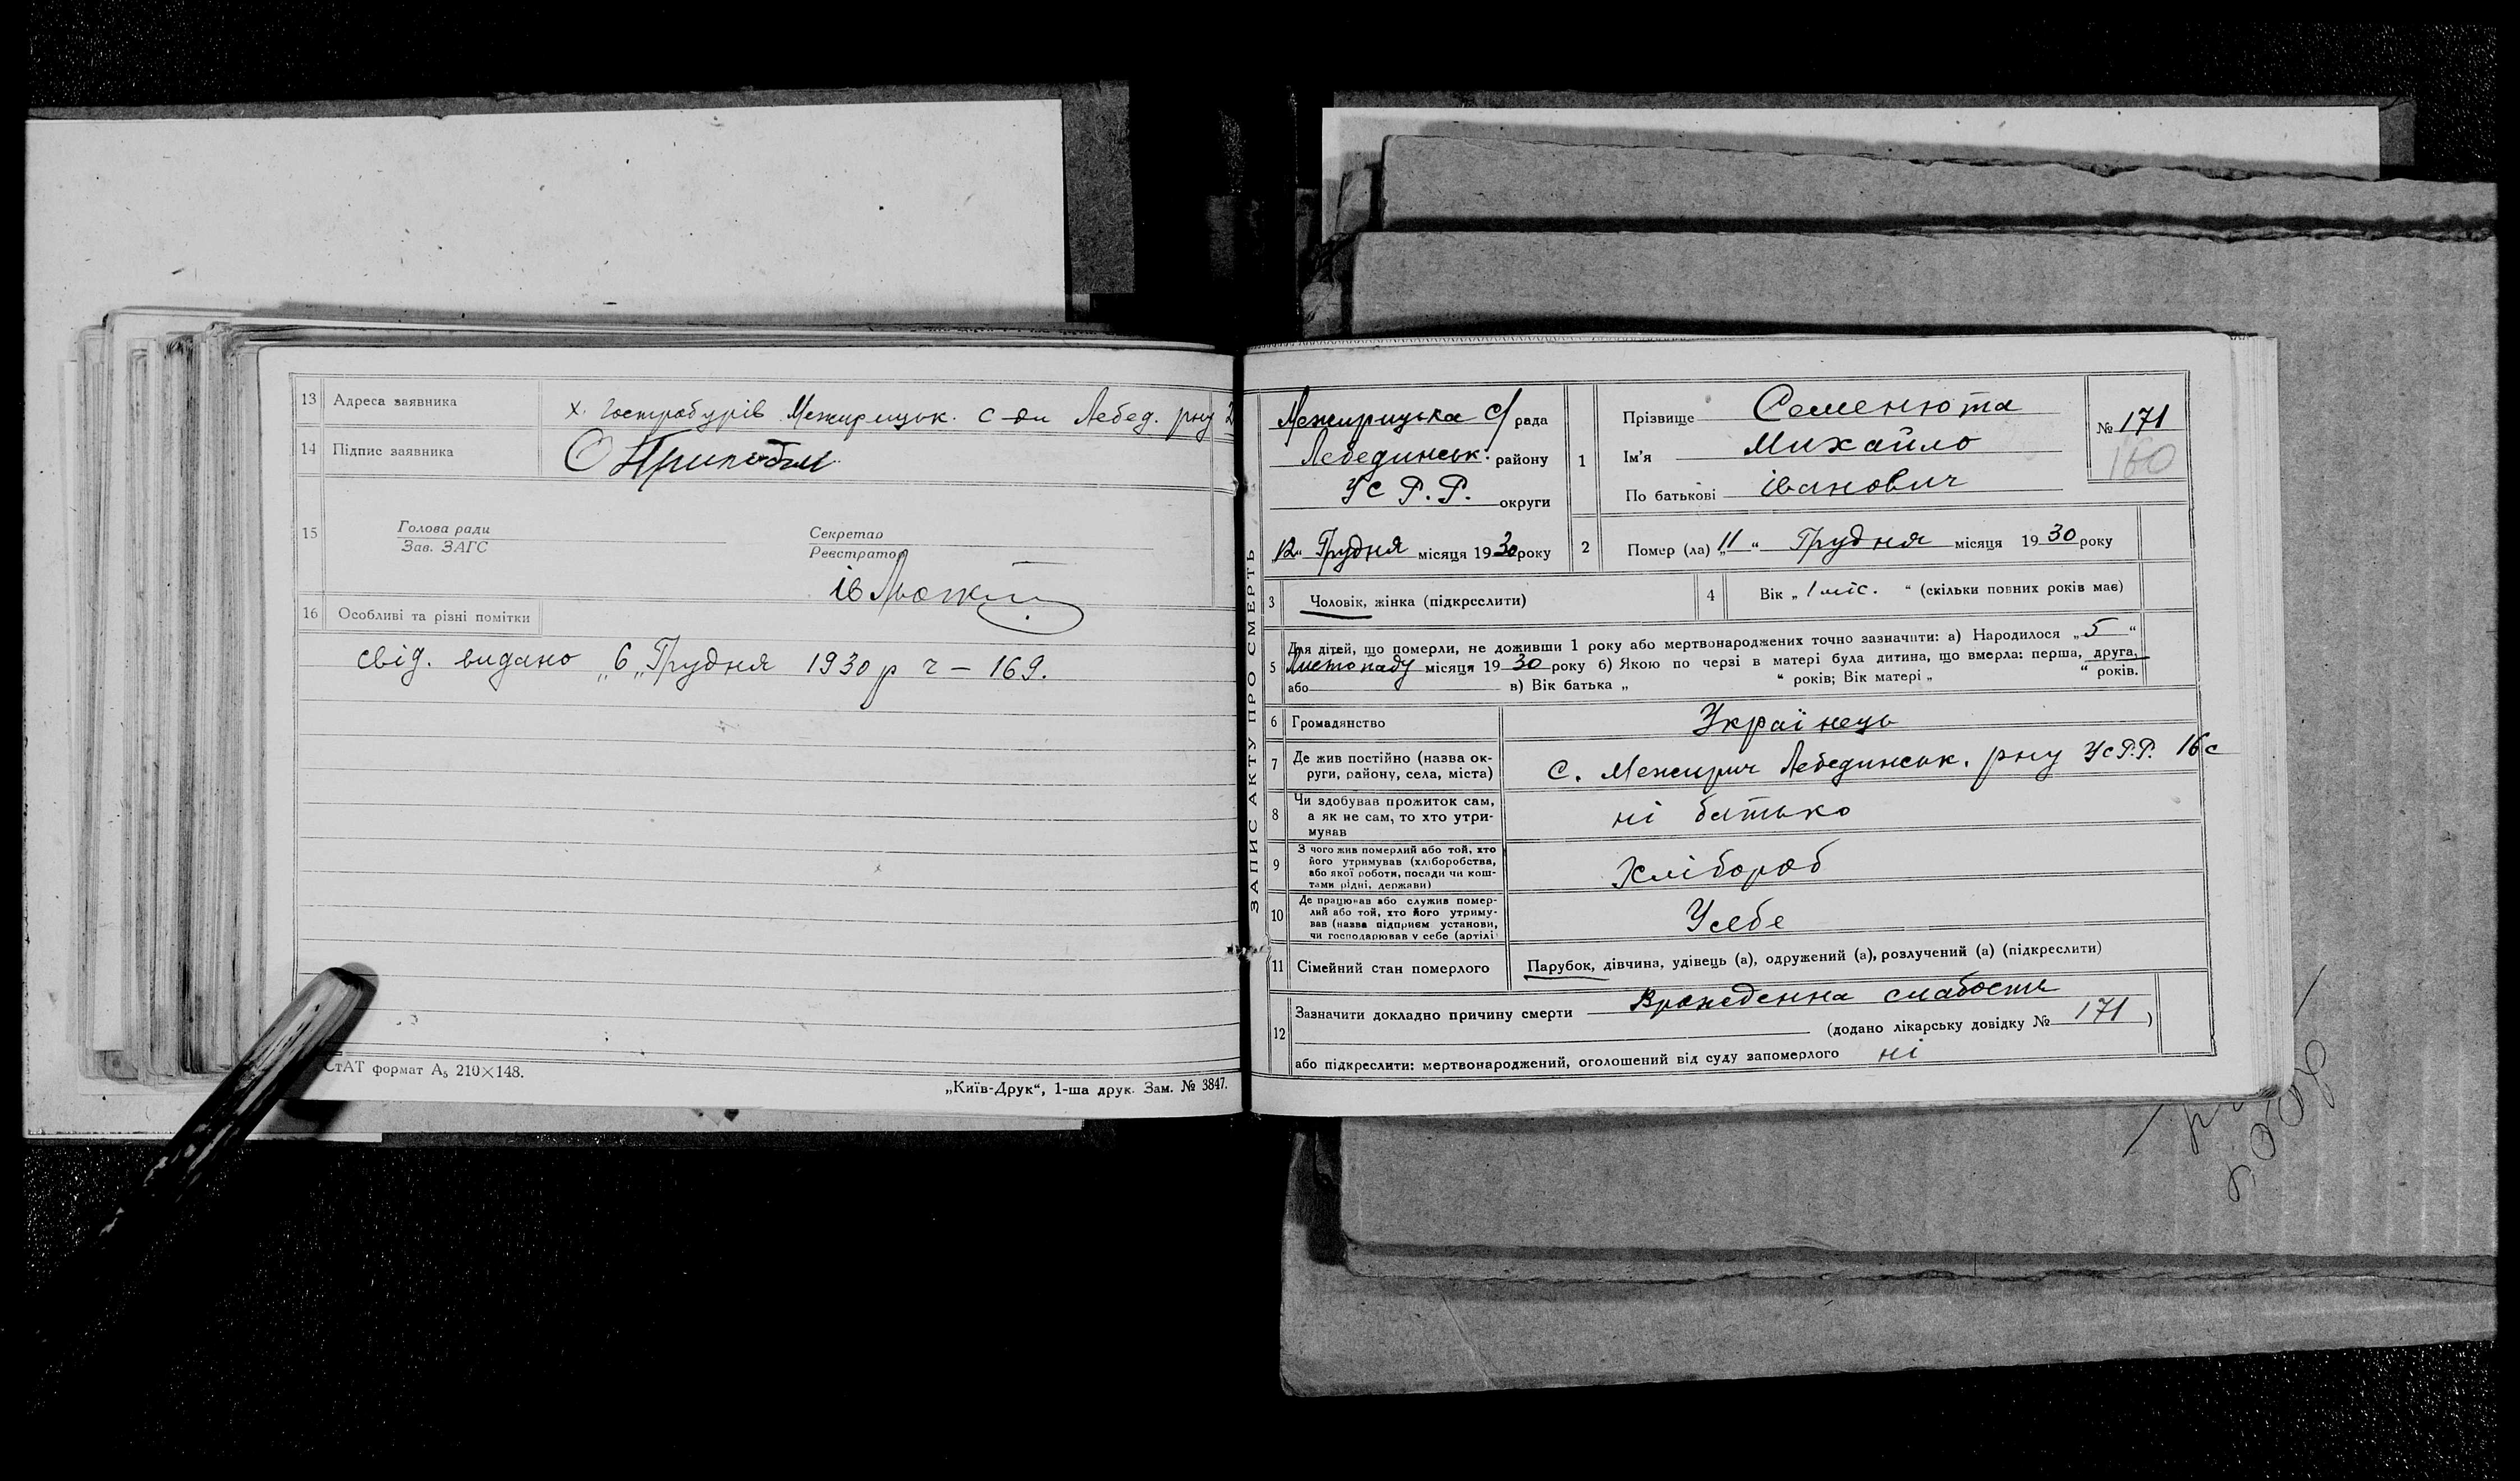 13 Адреса заявника х. Гострабурів Межирицьк. с-ди Лебед. рну
14 Підпис заявника
15 Голова ради
Зав. ЗАГС
Секретар
Реєстратор
16 Особливі та різні помітки
свід. видано „6„ Грудня 1930 р ч – 169.
СтАТ формат А₅ 210×148.
„Київ-Друк“, 1-ша друк. Зам. № 3847.
ЗАПИС АКТУ ПРО СМЕРТЬ
Межирицька с/ рада
Лебединськ. району
УСРР. округи
12“ Грудня місяця 1930 року
1 Прізвище Семенюта
Ім'я Михайло
По батькові іванович
№ 171
160
2 Помер (ла) „11“ Грудня місяця 1930 року
3 Чоловік, жінка (підкреслити)
4 Вік „ 1 міс. “ (скільки повних років має)
5 Для дітей, що померли, не доживши 1 року або мертвонароджених точно зазначити: а) Народилося „5“
Листопаду місяця 1930 року б) Якою по черзі в матері була дитина, що вмерла: перша, друга,
або в) Вік батька „ “ років; Вік матері „ “ років.
6 Громадянство Українець
7 Де жив постійно (назва округи, району, села, міста) с. Межирич Лебединськ. рну УСРР. 16 с
8 Чи здобував прожиток сам,
а як не сам, то хто утри-
мував ні батько
9 З чого жив померлий або той, хто
його утримував (хліборобства,
або якої роботи, посади чи кош-
тами рідні, держави) Хлібороб
10 Де працював або служив помер-
лий або той, хто його утриму-
вав (назва підприєм установи,
чи господарював у себе (артілі) Усебе
11 Сімейний стан померлого Парубок, дівчина, удівець (а), одружений (а), розлучений (а) (підкреслити)
12 Зазначити докладно причину смерти Врожденна слабость
(додано лікарську довідку № 171 )
або підкреслити: мертвонароджений, оголошений від суду запомерлого ні